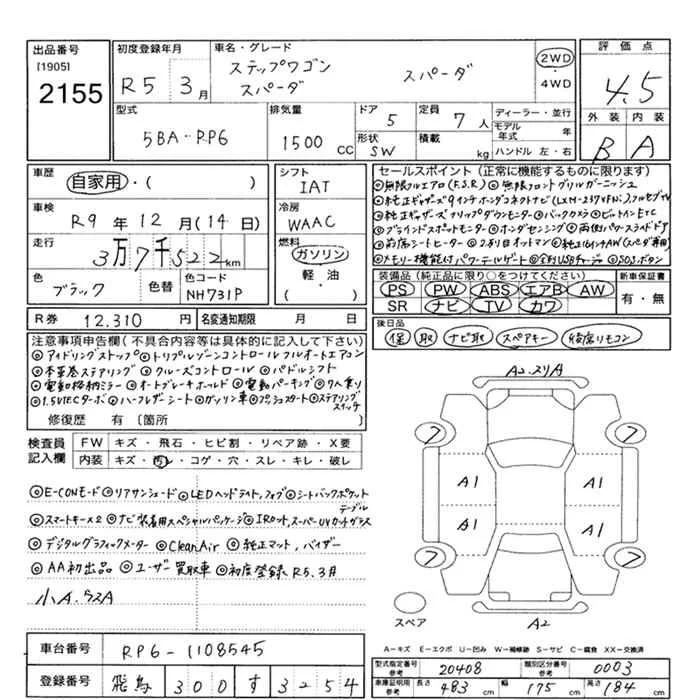 出品番号 [1905] 2155
初度登録年月 R5 3月
車名・グレード ステップワゴン スパーダ スパーダ
2WD ・ 4WD
評価点 4.5
外装 内装
B A
型式 5BA-RP6
排気量 1500 CC
ドア 5
形状 SW
定員 7人
積載 kg
ディーラー・並行
モデル年式 年
ハンドル 左・右
車歴 自家用・( )
車検 R9年12月(14日)
走行 3万7千522km
色 ブラック 色替
色コード NH731P
シフト IAT
冷房 WAAC
燃料 ガソリン・軽・油 ( )
R券 12.310円
名変通知期限 月 日
セールスポイント(正常に機能するものに限ります)
◎無限フルエアロ(F.S.R) ◎無限フロントグリルガーニッシュ
◎純正ギャザーズ9インチホンダコネクトナビ(LXM-237VFNi),フルセグTV
◎純正ギャザーズ クリップダウンモニター◎バックカメラ◎ビルトインETC
◎ブラインドスポットモニター◎ホンダセンシング◎両側パワースライドドア
◎前席シートヒーター◎2列目オットマン◎純正16インチAW(スパーダ専用)
◎メモリー機能付パワーテールゲート◎全列USBチャージ◎SOSボタン
装備品(純正品に限り○をつけてください)
PS PW ABS エアB AW
SR ナビ TV カワ
新車保証書 有・無
後日品 保 取 ナビ取 スペアキー 後席リモコン
注意事項申告欄(不具合内容等は具体的に記入して下さい)
◎アイドリングストップ◎トリプルゾーンコントロール フルオートエアコン
◎本革巻ステアリング◎クルーズコントロール◎パドルシフト
◎電動格納ミラー◎オートブレーキホールド◎電動パーキング◎7人乗り
◎1.5VTECターボ◎ハーフレザーシート◎ガソリン車◎プッシュスタート◎ステアリングスイッチ
修復歴 有 [箇所 ]
検査員記入欄
FW キズ・飛石・ヒビ割・リペア跡・X要
内装 キズ・汚レ・コゲ・穴・スレ・キレ・破レ
◎E-CONモード◎リアサンシェード◎LEDヘッドライト,フォグ◎シートバックポケット
テーブル
◎スマートキー×2 ◎ナビ装着用スペシャルパッケージ◎IRカット,スーパーUVカットガラス
◎デジタルグラフィックメーター ◎CleanAir ◎純正マット,バイザー
◎AA初出品 ◎ユーザー買取車 ◎初度登録R5.3月
小A.
A2
7 7
A1 A1
A1 A1
7 7
スペア A2
A-キズ E-エクボ U-凹み W-補修跡 S-サビ C-腐食 XX-交換済
車台番号 RP6-1108545
登録番号 飛鳥 300 す 3254
型式指定番号 参考 20408
類別区分番号 参考 0003
車庫証明用 参考 長さ 483 cm 幅 175 cm 高さ 184 cm